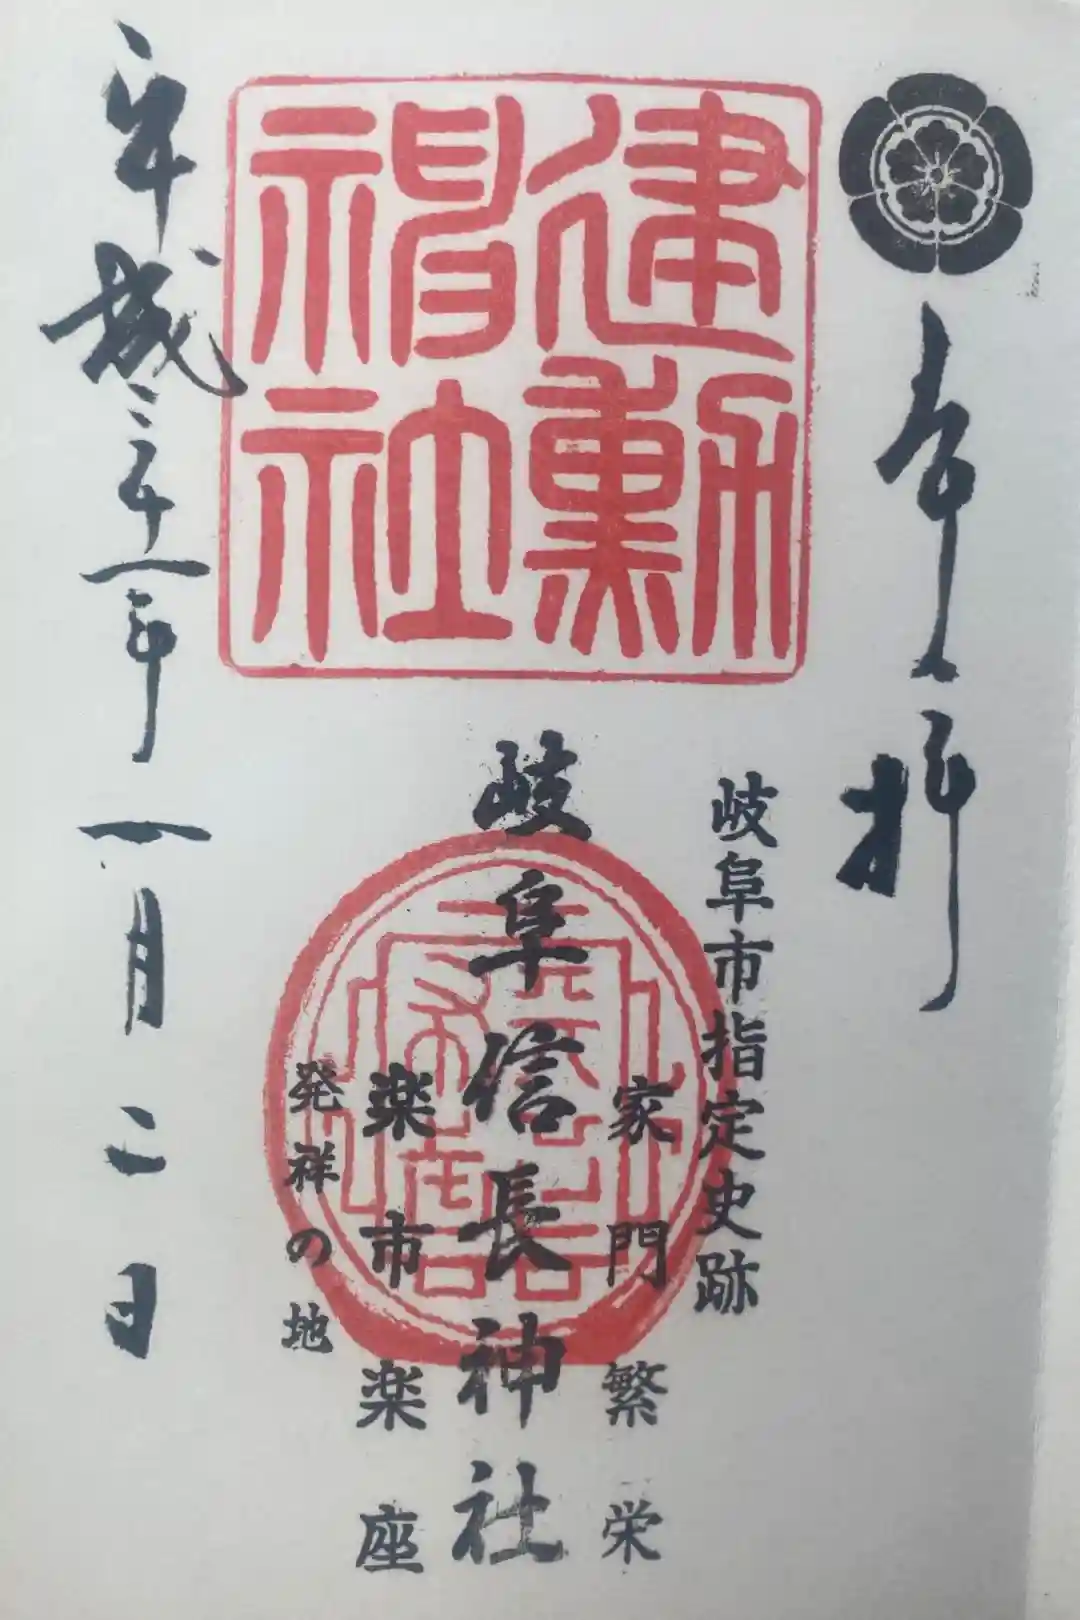 奉拝
建勲
神社
岐阜市指定史跡
家門繁栄
岐阜信長神社
楽市楽座
発祥の地
平成三十一年一月二日